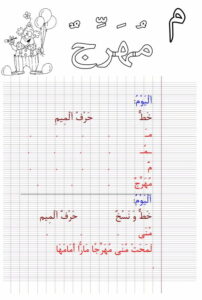 م
مُهَرِّجٌ
اَلْيَوْمُ:
خَطٌّ حَرْفُ الْمِيمِ
مـ
ـمـ
م
مُهَرِّجٌ
اَلْيَوْمُ:
خَطٌّ وَ نَسْخٌ حَرْفُ الْمِيمِ
مُنَى
لَمَحَتْ مُنَى مُهَرِّجًا مَارًّا أَمَامَهَا